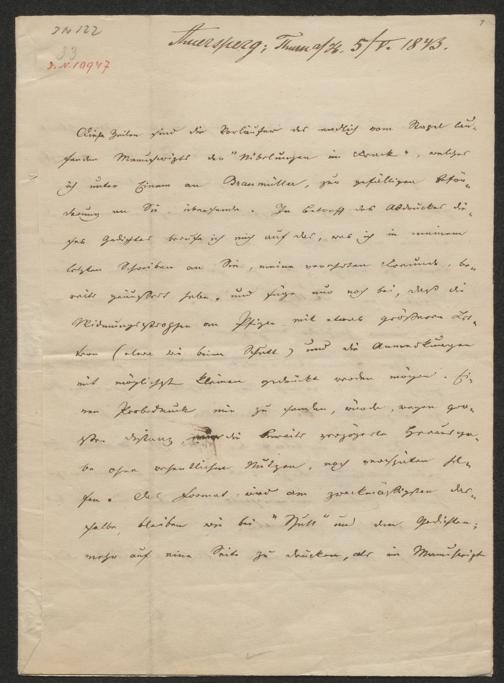 J.N 122
33
J.N. 10947
Auersperg; Thurn a/H. 5/V. 1843.
Diese Zeilen sind die Vorläufer des endlich vom Stapel lau-
fenden Manuscripts der "Nibelungen im Frack", welches
ich unter Einem an Braumüller, zur gefälligen Beför-
derung an Sie, übersende. In betreff des Abdruckes die-
ses Gedichtes berufe ich mich auf das, was ich in meinem
letzten Schreiben an Sie, meine verehrten Freunde, be-
reits geäußert habe, und füge nur noch bei, daß die
Widmungsstrophen an mit etwas größeren Let-
tern (etwa wie beim Schutt) und die Anmerkungen
mit möglichst kleinen gedruckt werden mögen. Ei-
nen Probedruck mir zu senden, würde, wegen gro-
ßer Distanz, die bereits verzögerte Herausga-
be ohne wesentlichen Nutzen, noch verspäten hel-
fen. Das Format wird am zweckmäßigsten das-
selbe bleiben wie bei "Schutt" und den Gedichten;
mehr auf eine Seite zu drucken, als im Manuscript